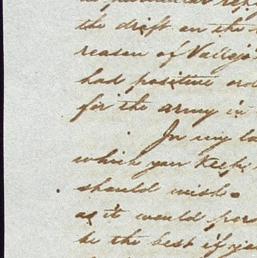 the draft on the
reason of Vallejo's
had positive ord
for the army in
In my la
which you keep
should wish
as it would per
be the best if you